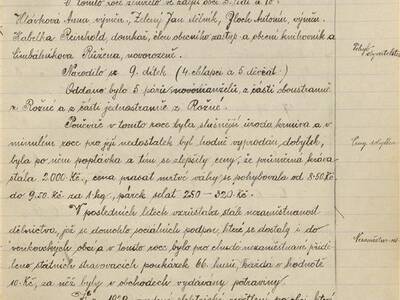 V tomto roce zemřelo ze zdejší obce 5 lidí a to:
Hlávková Anna výměn., Zelený Jan dělník, Glosk Antonín, výměn.
Kabelka Reinhold, domkář, člen obecního zastup. a obecní knihovník a
Cimbálníkova Růžena, novorozeně.
Narodilo se 9. dítek (4 chlapci a 5 děvčat)
Oddáno bylo 5 párů novomanželů, z části oboustranně
z Rožné a z části jednostranně z Rožné.
Poněvíc v tomto roce byla slušnější úroda krmiva a v
minulém roce pro její nedostatek byl hodně vyprodán dobytek,
byla po něm poptávka a tím se zlepšily ceny, že průměrná kráva
stála 2.000 Kč, cena prasat mrtvé váhy se pohybovala od 8·50 Kč
do 9·50 Kč za 1 kg, párek selat 250 – 320 Kč.
V posledních létech vzrůstala stať nezaměstnanost
dělnictva, jež se domohlo sociálních podpor, které se dostaly i do
venkovských obcí a v tomto roce bylo pro chudé nezaměstnané příděl-
eno státních stravovacích poukázek 66 kusů, každá v hodnotě
10 Kč, za něž byly v obchodech vydávány potraviny.
Pohyb obyvatelstva
Ceny dobytka